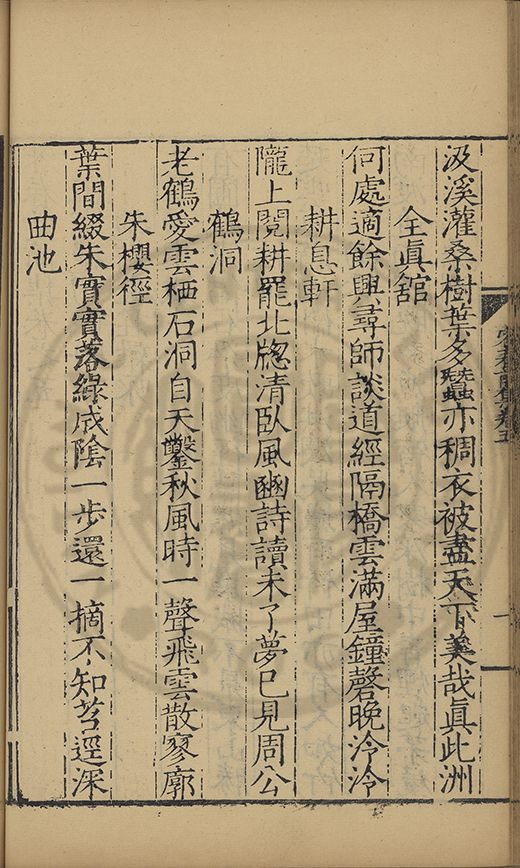 汲溪灌桑樹葉多蠶亦稠衣被盡天下美哉眞此洲
全眞舘
何處適餘興尋師談道經隔橋雲滿屋鐘磬晚泠泠
耕息軒
隴上閱耕罷北牕清臥風豳詩讀未了夢已見周公
鶴洞
老鶴愛雲栖石洞自天鑿秋風時一聲飛雲散寥廓
朱櫻徑
葉間綴朱實實落緑成陰一步還一摘不知芩逕深
曲池